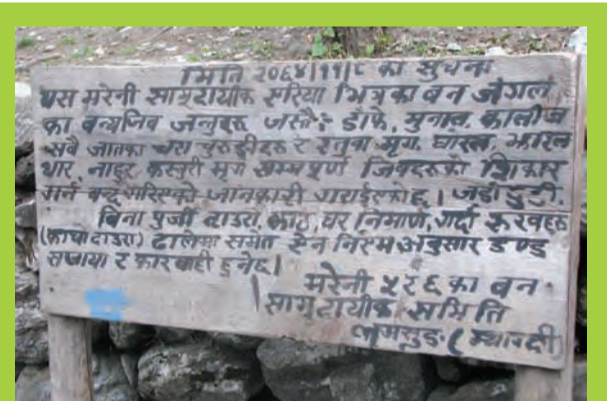 मिति २०६४।११।८ का सुचना
यस मरेनी सामुदायीक सरिया भित्रका बन जंगल
का बन्यजिव जन्तुहरू जस्तै: डाँफे, मुनाल, कालीज
सबै जातका चरा चुरुङ्गीहरु र रतुवा मृग, घोरल, झारल
थार, नाउर, कस्तुरी मृग सम्पपूर्ण जिवहरुको शिकार
गर्न बन्द गरिएको जानकारी गराईएकोछ। जडीबुटी.
बिना पुर्जी दाउरा, काठ, घर निमार्ण, गर्दा रूखहरु
(काँचादाउरा) ढालेमा समेत ऐन नियमअनुसार डण्ड
सजाया र कारवाही हुनेछ।
मरेनी ५ र ६ का बन
सामुदायीक समिति
(म्याग्दी)